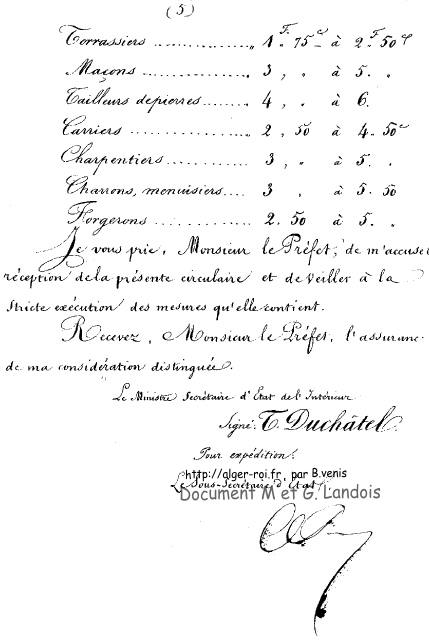 (5)
Terrassiers ................ „ 1F. 75c à 2F 50c
Maçons ................ „ 3, „ à 5. „
Tailleurs de pierres........ „ 4, „ à 6.
Carriers .................. „ 2, 50 à 4. 50c
Charpentiers............... 3, „ à 5. „
Charrons, menuisiers.... 3 „ à 5. 50
Forgerons ............... 2. 50 à 5. „
Je vous prie, Monsieur le Préfet, de m'accuser
réception de la présente circulaire et de veiller à la
stricte exécution des mesures qu'elle contient.
Recevez, Monsieur le Préfet, l'assuranc
de ma considération distinguée.
Le Ministre Secrétaire d'Etat de l'Intérieur
Signé: T. Duchâtel.
Pour expédition.
http://alger-roi.fr, par B.venis
Le Sous-Secrétaire d'Etat
Document M et G. Landois